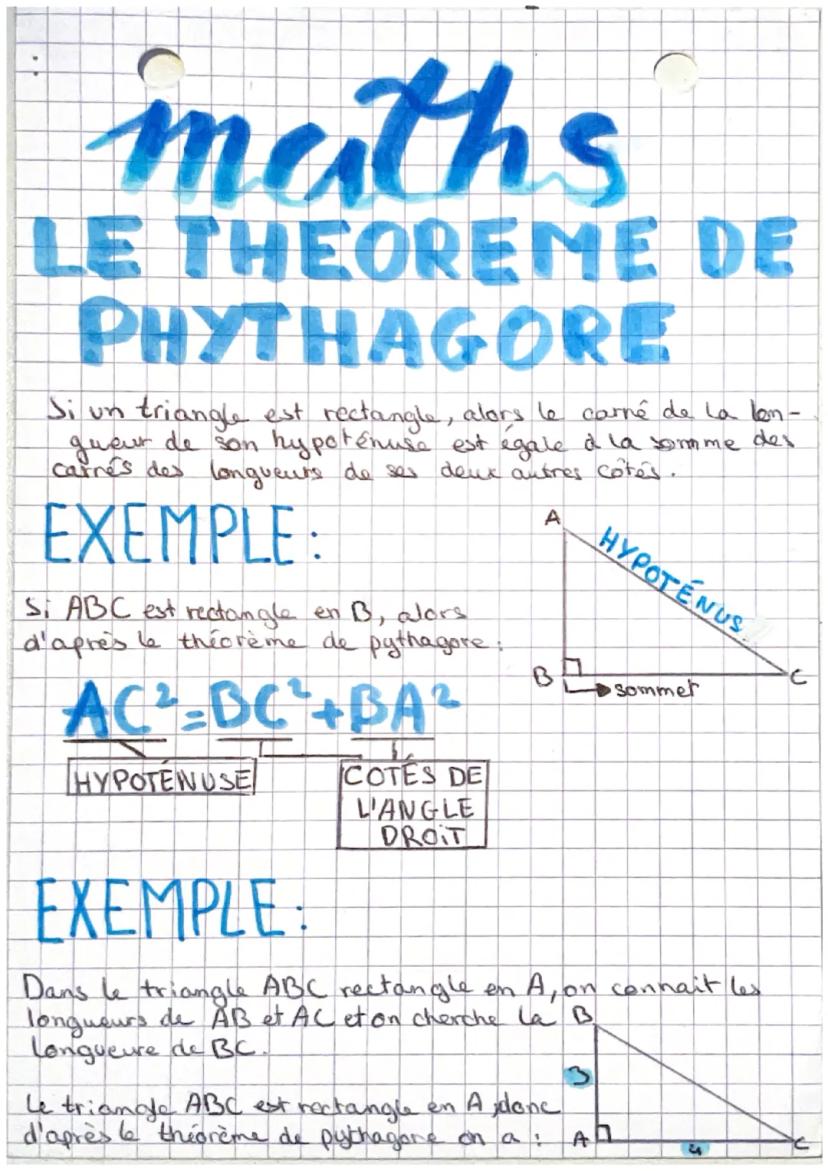 maths
LE THEOREME DE
PHYTHAGORE
Si un triangle est rectangle, alors le carré de la lon-
gueur de son hypoténuse est égale à la somme des
carrés des longueurs de ses deux autres côtés.
EXEMPLE:
A
HYPOTÉNUS
Si ABC est rectangle en B, alors
d'après le théorème de pythagore:
B
C
sommet
AC²=BC²+BA²
HYPOTÉNUSE
COTÉS DE
L'ANGLE
DROIT
EXEMPLE:
Dans le triangle ABC rectangle en A, on connait les
longueurs de AB et AC et on cherche la
longueure de BC.
B
3
Le triangle ABC est rectangle en A, donc
d'après le théorème de pythagore on a :
A
4
C